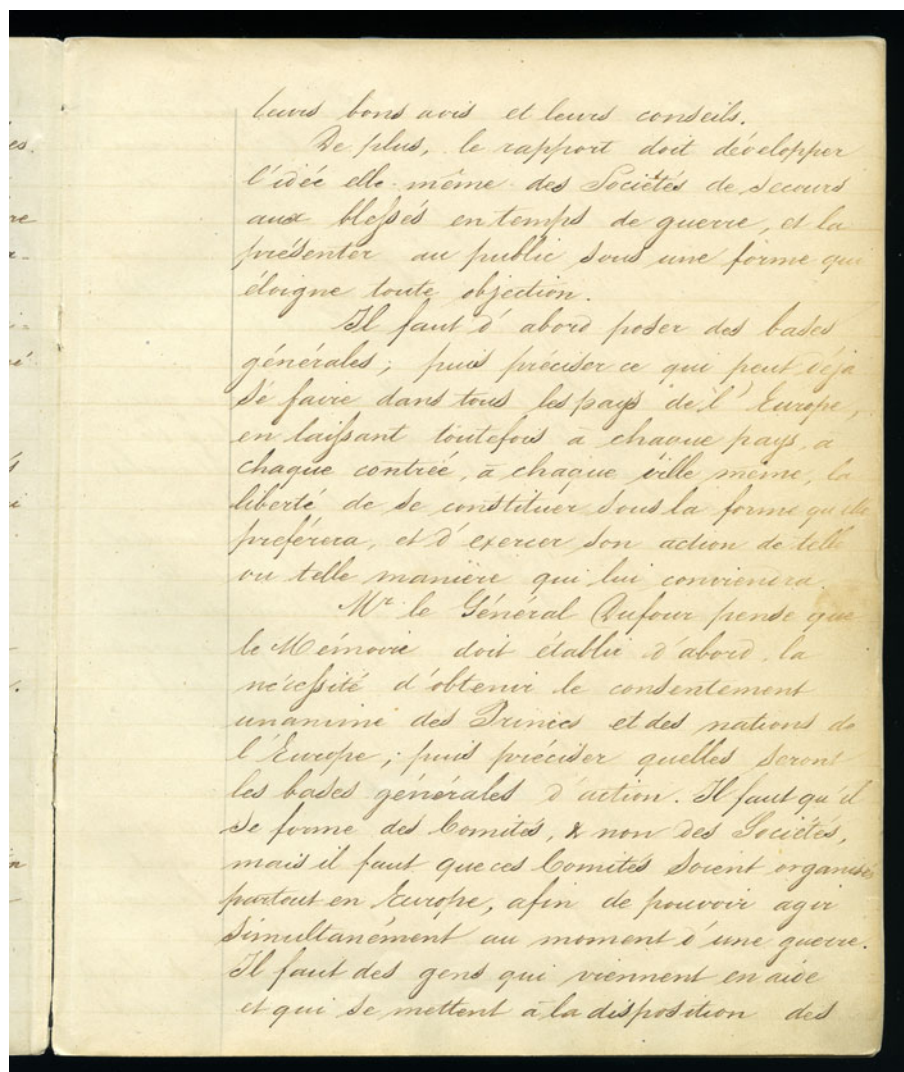 leurs bons avis et leurs conseils.
De plus, le rapport doit développer
l'idée elle-même des Sociétés de secours
aux blessés en temps de guerre, et la
présenter au public sous une forme qui
éloigne toute objection.
Il faut d'abord poser des bases
générales; puis préciser ce qui peut déjà
se faire dans tous les pays de l'Europe,
en laissant toutefois à chaque pays, à
chaque contrée, à chaque ville même, la
liberté de se constituer sous la forme qu'elle
préférera, et d'exercer son action de telle
ou telle manière qui lui conviendra.
Mr le Général Dufour pense que
le Mémoire doit établir d'abord, la
nécessité d'obtenir le consentement
unanime des Princes et des nations de
l'Europe; puis préciser quelles seront
les bases générales d'action. Il faut qu'il
se forme des Comités, & non des Sociétés,
mais il faut que ces Comités soient organisés
partout en Europe, afin de pouvoir agir
simultanément au moment d'une guerre.
Il faut des gens qui viennent en aide
et qui se mettent à la disposition des